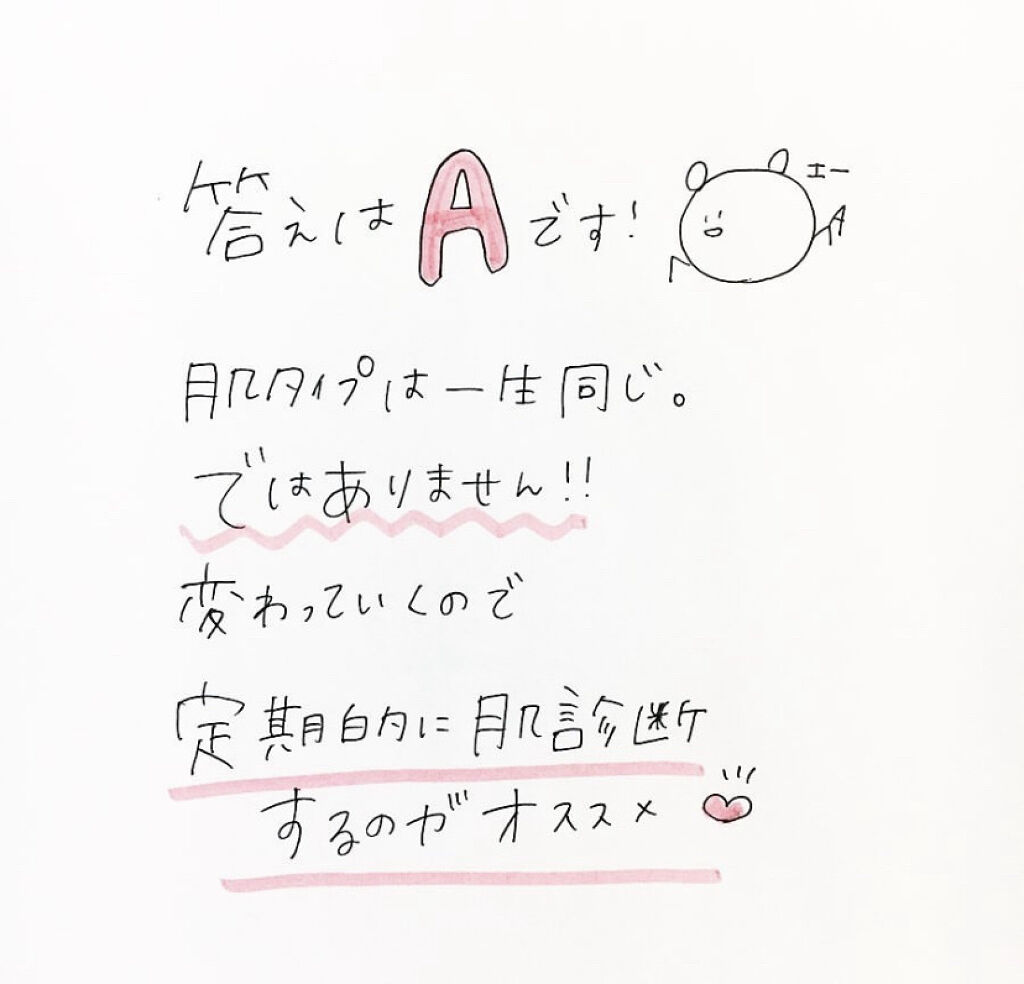 答えはAです!
エー
A
肌タイプは一生同じ。
ではありません!!
変わっていくので
定期的に肌診断
するのがオススメ